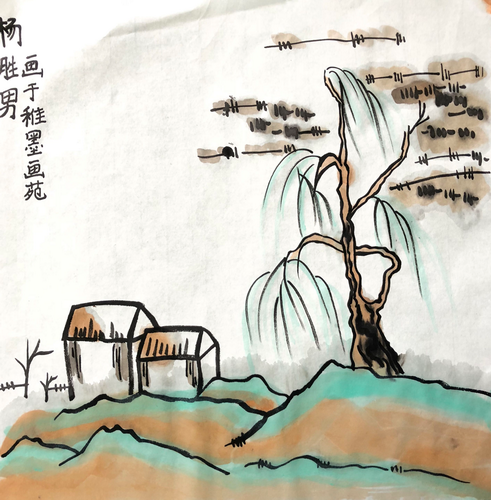 杨胜男
画于稚墨画苑